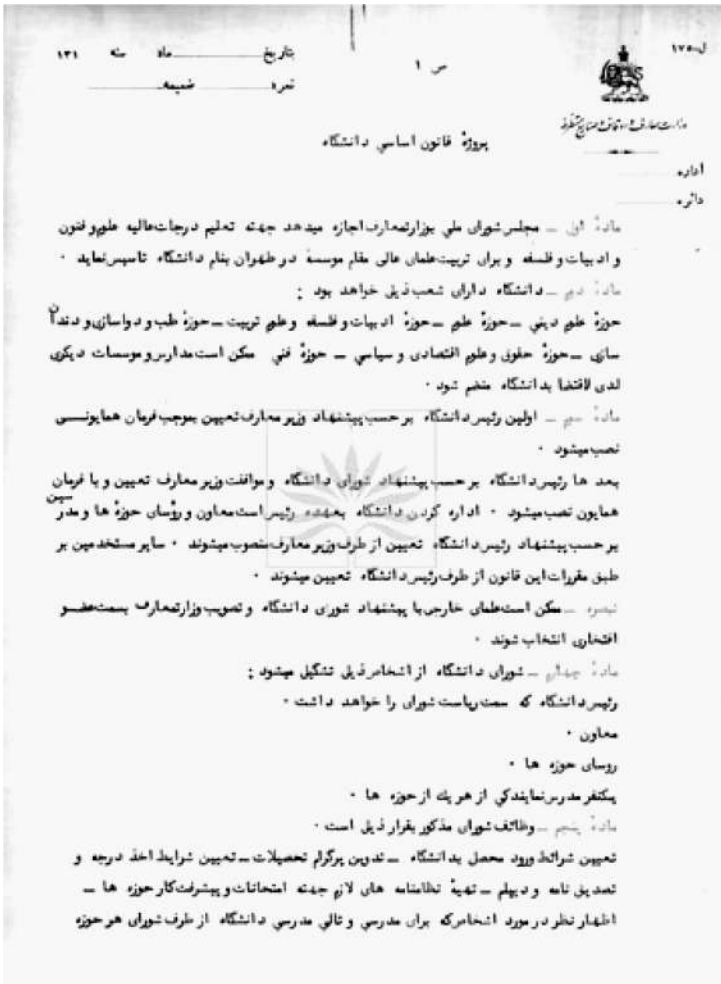 ل-۱۷۵۰
ص ۱
بتاریخ ماه سنه ۱۳۱
نمره ضمیمه
وزارت معارف و اوقاف و صنایع مستظرفه
اداره
دائره
پروژهٔ قانون اساسي دانشگاه
مادهٔ اول ــ مجلس شورای ملي بوزارتمعارف اجازه میدهد جهته تعلیم درجات عالیه علوم و فنون
و ادبیات و فلسفه و برای تربیت علمای عالی مقام موسسهٔ در طهران بنام دانشگاه تاسیس نماید ۰
مادهٔ دوم ــ دانشگاه دارای شعب ذیل خواهد بود :
حوزهٔ علوم دیني ــ حوزهٔ علوم ــ حوزهٔ ادبیات و فلسفه و علوم تربیت ــ حوزهٔ طب و دواسازی و دندان
سازی ــ حوزهٔ حقوق و علوم اقتصادی و سیاسي ــ حوزهٔ فني ممکن است مدارس و موسسات دیگری
لدی لاقتضا بدانشگاه منضم شود ۰
مادهٔ سوم ــ اولین رئیس دانشگاه بر حسب پیشنهاد وزیر معارف تعیین بموجب فرمان همایونی
نصب میشود ۰
بعد ها رئیس دانشگاه بر حسب پیشنهاد شورای دانشگاه و موافقت وزیر معارف تعیین و با فرمان
همایون نصب میشود ۰ اداره کردن دانشگاه بعهده رئیس است معاون و رؤسای حوزهٔ ها و مدرسین
بر حسب پیشنهاد رئیس دانشگاه تعیین از طرف وزیر معارف منصوب میشوند ۰ سایر مستخدمین بر
طبق مقررات این قانون از طرف رئیس دانشگاه تعیین میشوند ۰
تبصره ــ ممکن است علمای خارجی با پیشنهاد شورای دانشگاه و تصویب وزارتمعارف بسمت عضو
افتخاری انتخاب شوند ۰
مادهٔ چهارم ــ شورای دانشگاه از اشخاص ذیل تشکیل میشود :
رئیس دانشگاه که سمت ریاست شورای را خواهد داشت ۰
معاون ۰
روسای حوزه ها ۰
یکنفر مدرس نمایندگي از هر یك از حوزه ها ۰
مادهٔ پنجم ــ وظائف شورای مذکور بقرار ذیل است ۰
تعیین شرائط ورود محصل بدانشگاه ــ تدوین پرگرام تحصیلات ــ تعیین شرایط اخذ درجه و
تصدیق نامه و دیپلم ــ تهیهٔ نظامنامه های لازم جهته امتحانات و پیشرفت کار حوزه ها ــ
اظهار نظر در مورد اشخاص که برای مدرسي و تالي مدرسي دانشگاه از طرف شورای هر حوزه